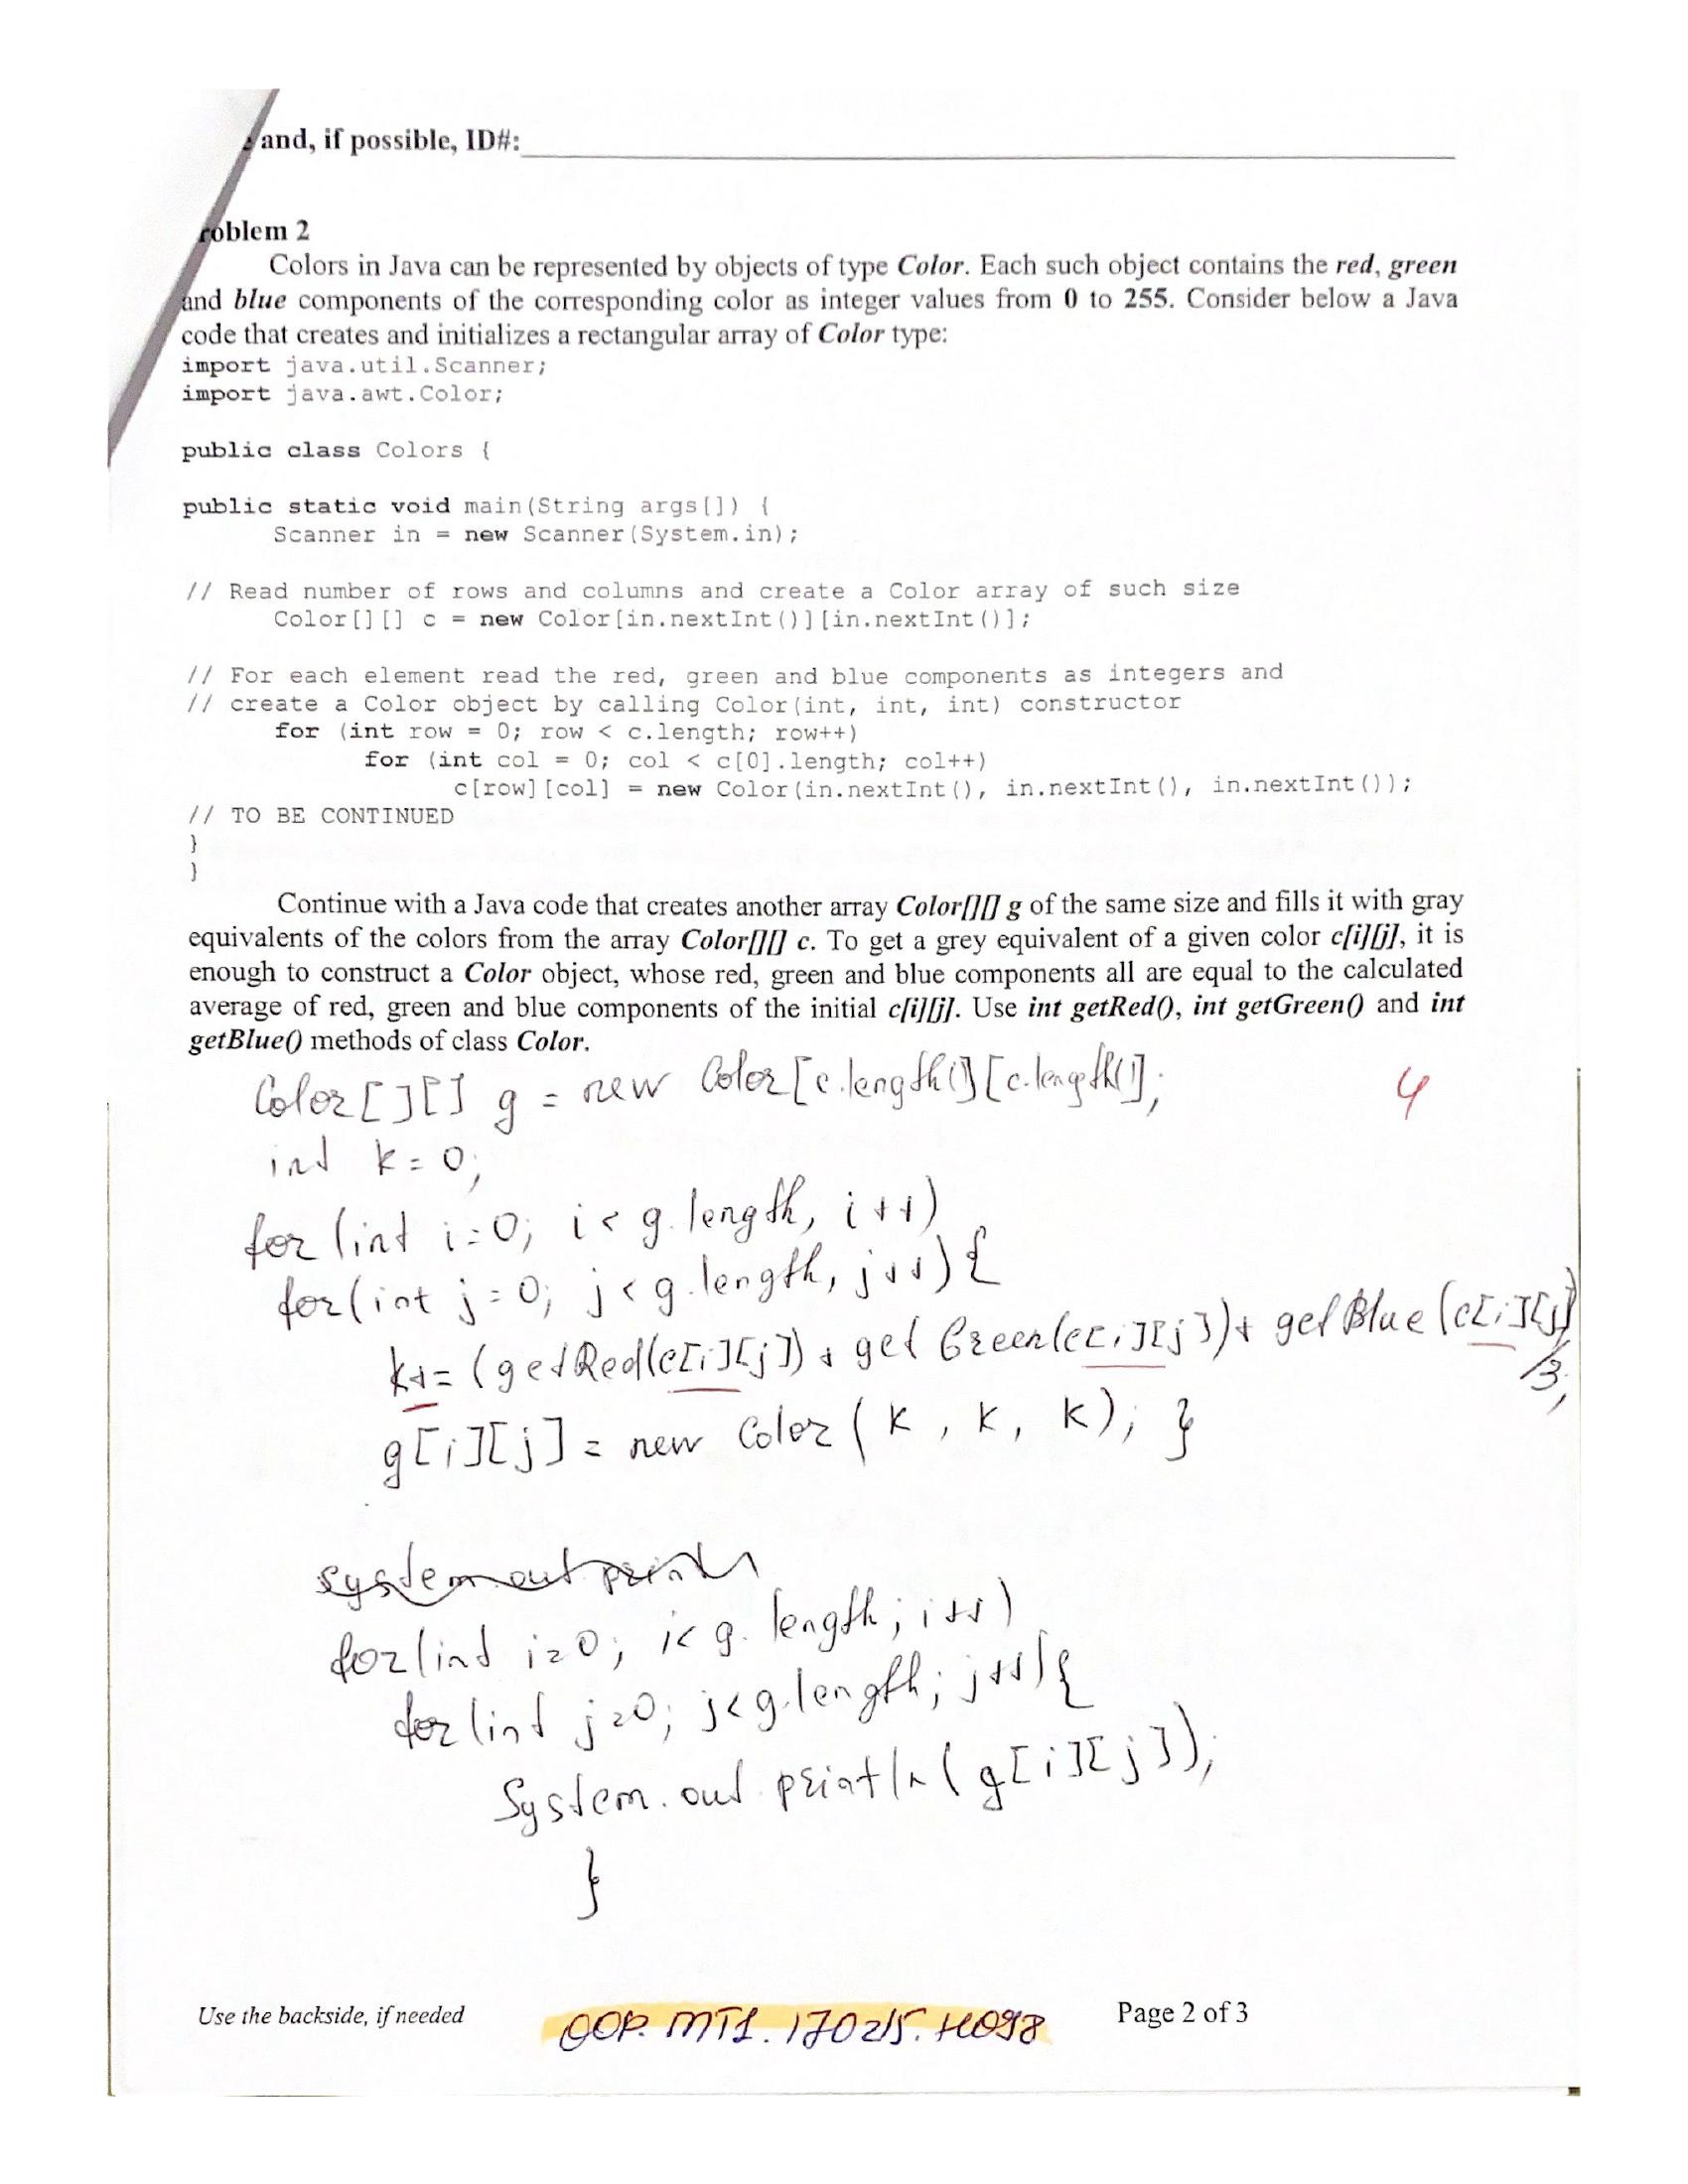 and, if possible, ID#:
roblem 2
Colors in Java can be represented by objects of type Color. Each such object contains the red, green
and blue components of the corresponding color as integer values from 0 to 255. Consider below a Java
code that creates and initializes a rectangular array of Color type:
import java.util.Scanner;
import java.awt.Color;
public class Colors {
public static void main(String args[]) {
Scanner in = new Scanner(System.in);
// Read number of rows and columns and create a Color array of such size
Color[][] c = new Color[in.nextInt()][in.nextInt()];
// For each element read the red, green and blue components as integers and
// create a Color object by calling Color(int, int, int) constructor
for (int row = 0; row < c.length; row++)
for (int col = 0; col < c[0].length; col++)
c[row][col] = new Color(in.nextInt(), in.nextInt(), in.nextInt());
// TO BE CONTINUED
}
}
Continue with a Java code that creates another array Color[][] g of the same size and fills it with gray
equivalents of the colors from the array Color[][] c. To get a grey equivalent of a given color c[i][j], it is
enough to construct a Color object, whose red, green and blue components all are equal to the calculated
average of red, green and blue components of the initial c[i][j]. Use int getRed(), int getGreen() and int
getBlue() methods of class Color.
Color[][] g = new Color[c.length()][c.length()];
4
int k=0;
for (int i=0; i< g.length, i++)
for(int j=0; j<g.length, j++){
k+=(getRed(c[i][j])+getGreen(c[i][j])+getBlue(c[i][j])
/3;
g[i][j]= new Color(k, k, k); }
system out println
for(int i=0; i<g.length; i++)
for(int j=0; j<g.length; j++){
System.out.println(g[i][j]);
}
Use the backside, if needed
OOP. MT1. 170215. H098
Page 2 of 3